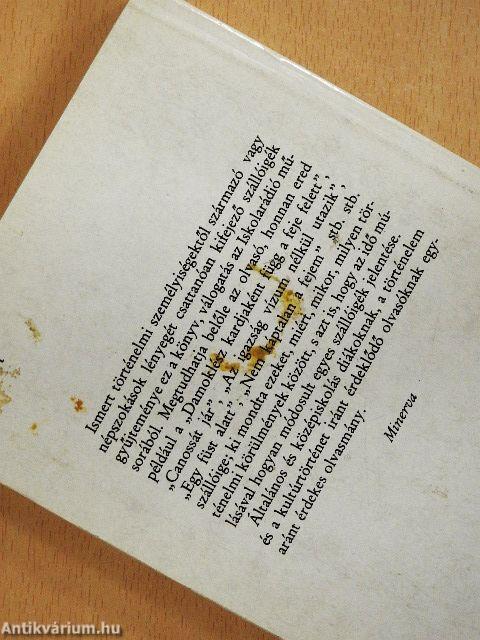 Ismert történelmi személyiségektől származó vagy
népszokások lényegét csattanóan kifejező szállóigék
gyűjteménye ez a könyv, válogatás az Iskolarádió mű-
sorából. Megtudhatja belőle az olvasó, honnan ered
például a „Damoklész kardjaként függ a feje felett”,
„Canossát jár”, „Az igazság vízum nélkül utazik”,
„Egy füst alatt”, „Nem káptalan a fejem” stb. stb.
szállóige; ki mondta ezeket, miért, mikor, milyen tör-
ténelmi körülmények között, s azt is, hogy az idő mú-
lásával hogyan módosult egyes szállóigék jelentése.
Általános és középiskolás diákoknak, a történelem
és a kultúrtörténet iránt érdeklődő olvasóknak egy-
aránt érdekes olvasmány.
Minerva
Antikvárium.hu